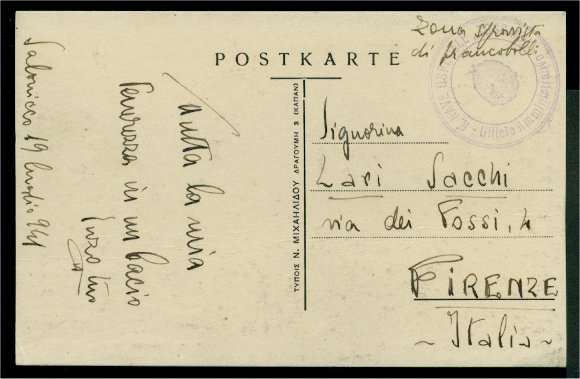 Zona sprovvista
di francobolli
POSTKARTE
R. NAVE
Ufficio Amministrativo
Salonicco 19 luglio 941
tutta la mia
tenerezza in un bacio
Enzo tuo
ΤΥΠΟΙΣ Ν. ΜΙΧΑΗΛΙΔΟΥ ΔΡΑΓΟΥΜΗ 3 (ΚΑΠΑΝ)
Signorina
Lari Sacchi
via dei Fossi, 4
FIRENZE
~ Italia ~